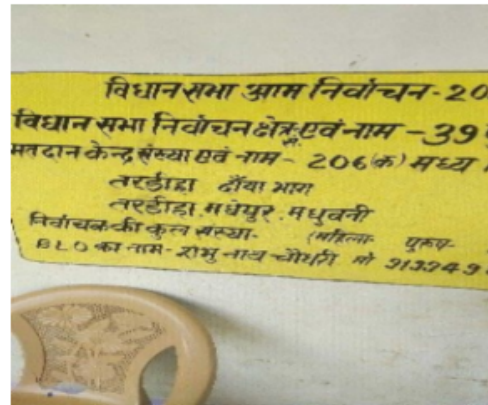 विधान सभा आम निर्वाचन-20
विधान सभा निर्वाचन क्षेत्र सं एवं नाम - 39
मतदान केन्द्र संख्या एवं नाम - 206(क) मध्य
तरडीहा दाँया भाग
तरडीहा, मधेपुर, मधुवनी
निर्वाचक की कुल संख्या- (महिला- पुरुष-
BLO का नाम- शंभु नाथ चौधरी मो 919949